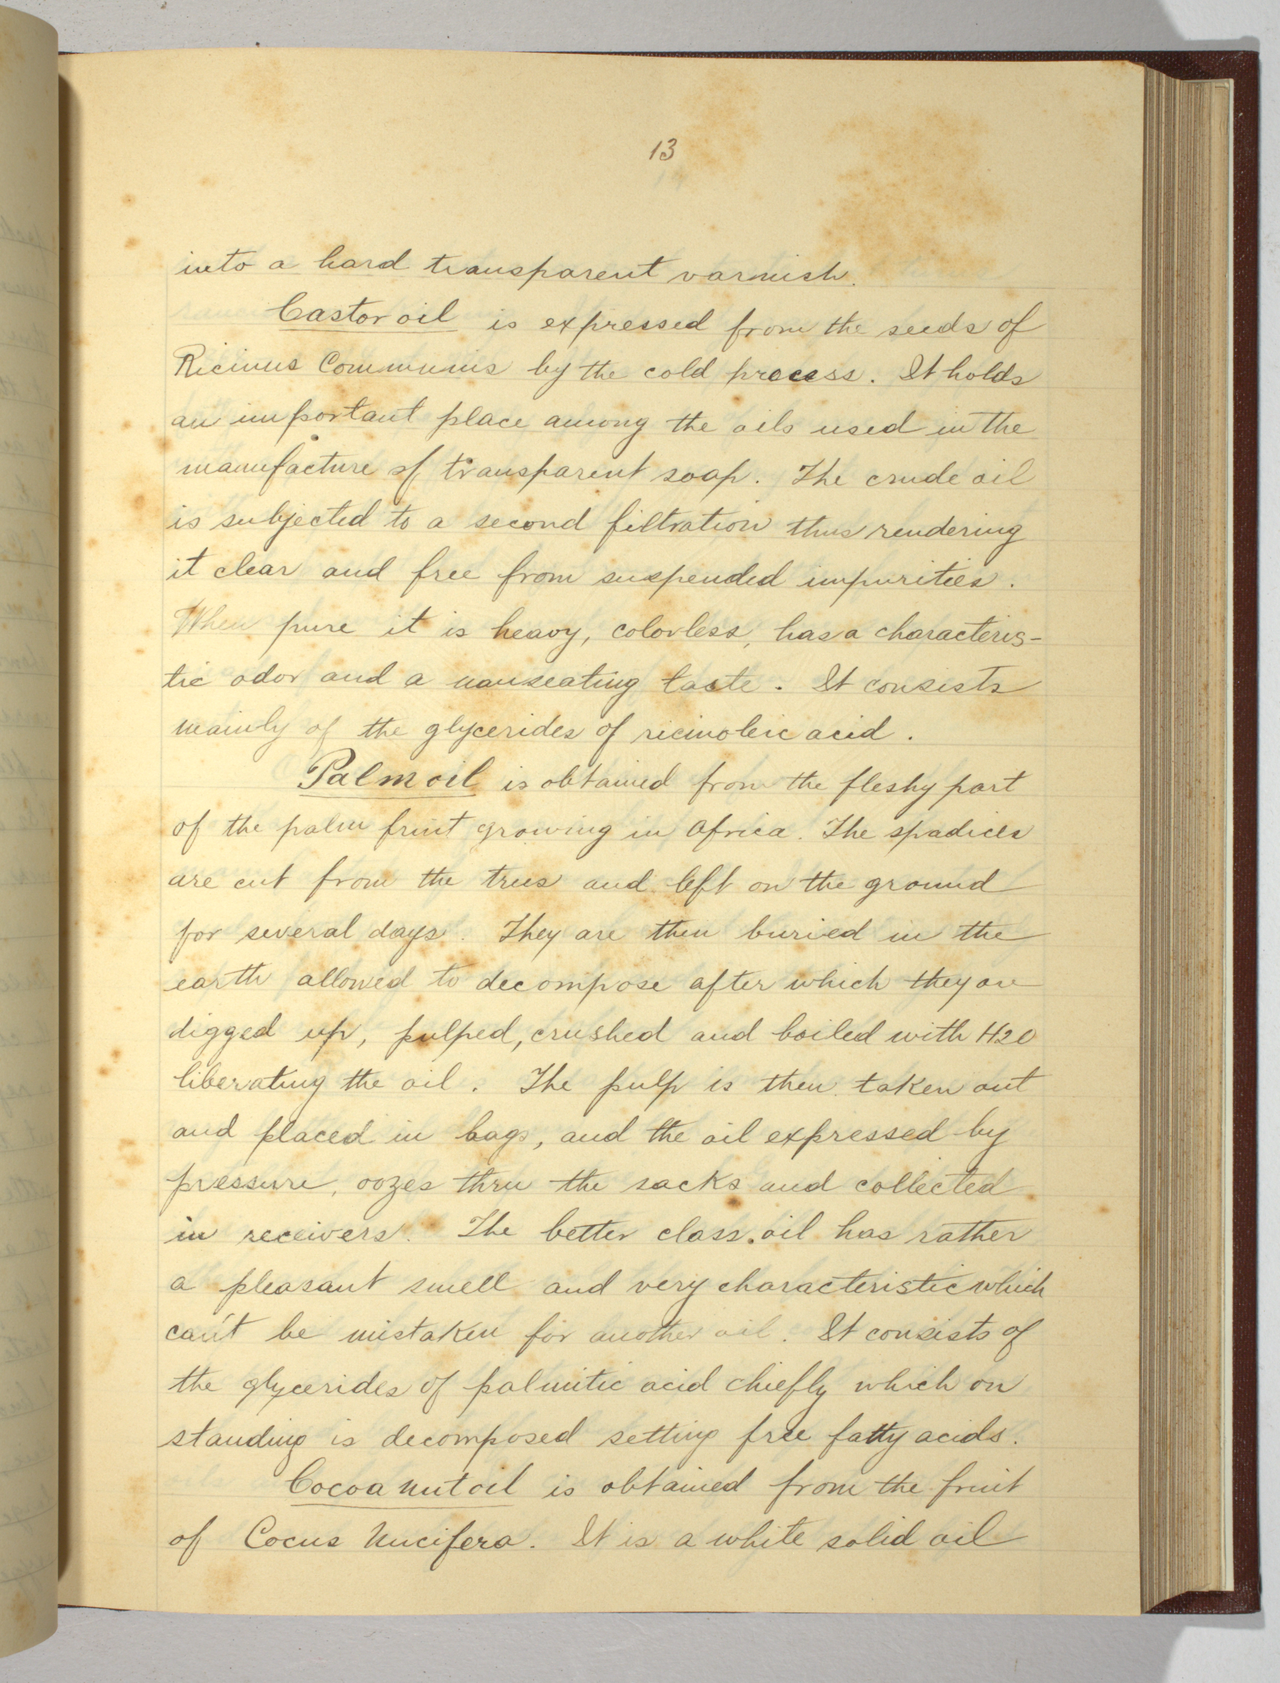 13
into a hard transparent varnish.
Castor oil is expressed from the seeds of
Ricinus Communis by the cold process. It holds
an important place among the oils used in the
manufacture of transparent soap. The crude oil
is subjected to a second filtration thus rendering
it clear and free from suspended impurities.
When pure it is heavy, colorless, has a characteris-
tic odor and a nauseating taste. It consists
mainly of the glycerides of ricinoleic acid.
Palm oil is obtained from the fleshy part
of the palm fruit growing in Africa. The spadices
are cut from the trees and left on the ground
for several days. They are then buried in the
earth allowed to decompose after which they are
digged up, pulped, crushed and boiled with H2O
liberating the oil. The pulp is then taken out
and placed in bags, and the oil expressed by
pressure, oozes thru the sacks and collected
in receivers. The better class oil has rather
a pleasant smell and very characteristic which
can't be mistaken for another oil. It consists of
the glycerides of palmitic acid chiefly which on
standing is decomposed setting free fatty acids.
Cocoanut oil is obtained from the fruit
of Cocus Nucifera. It is a white solid oil